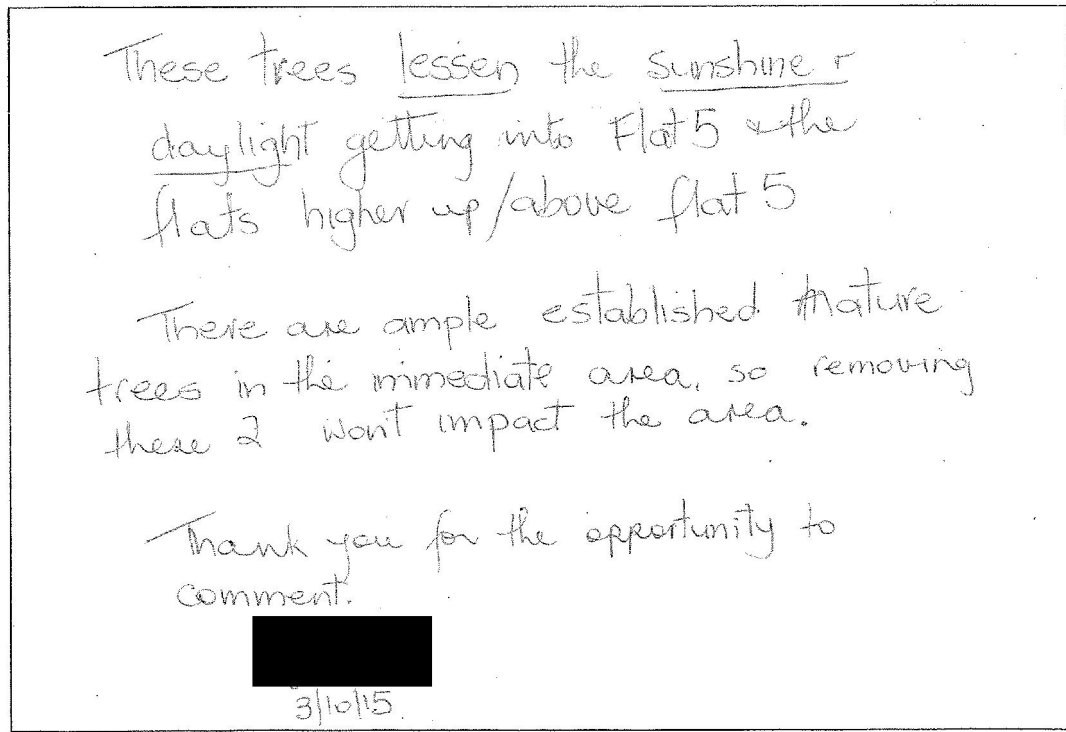 These trees lessen the sunshine +
daylight getting into Flat 5 & the
flats higher up/above flat 5
There are ample established mature
trees in the immediate area, so removing
these 2 won't impact the area.
Thank you for the opportunity to
comment.
3/10/15.